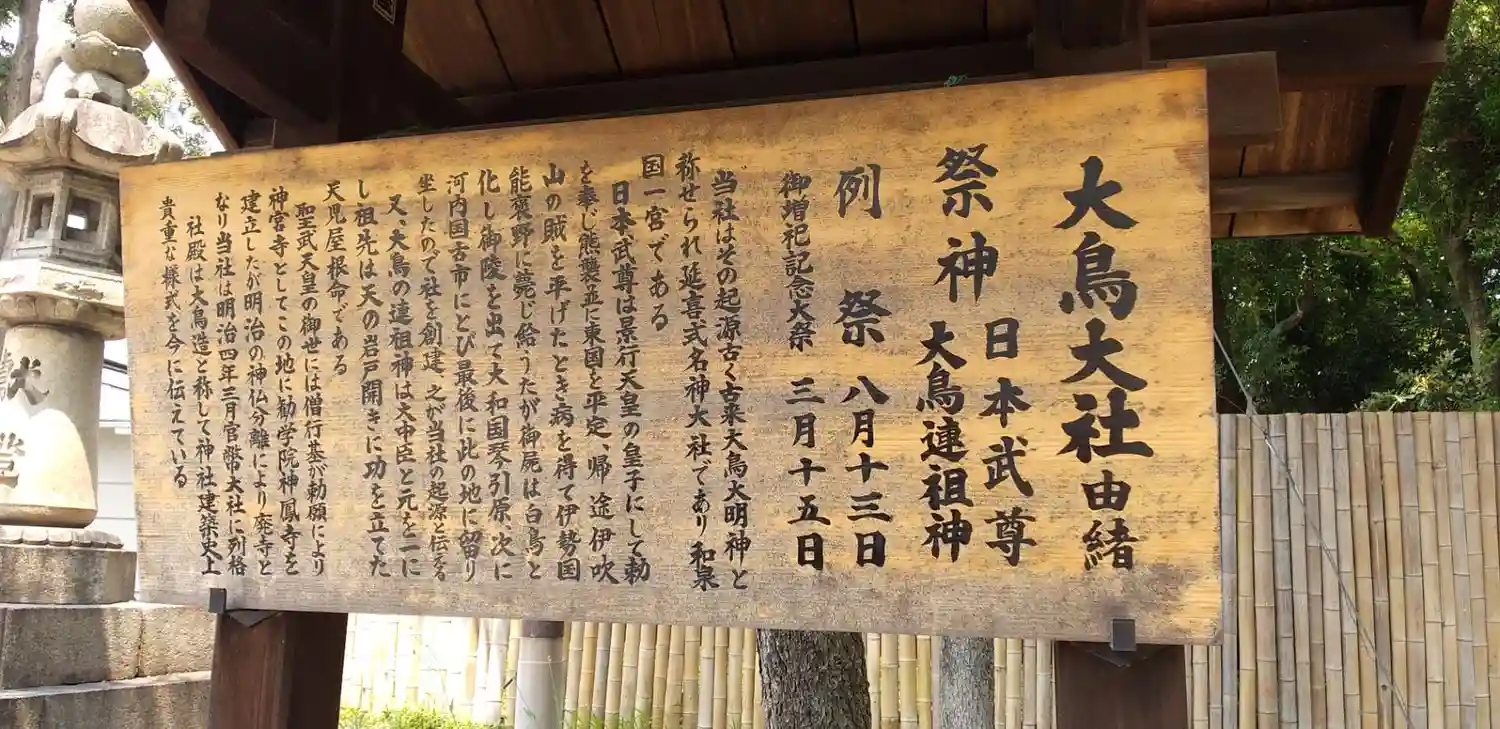 大鳥大社由緒
祭神 日本武尊
大鳥連祖神
例祭 八月十三日
御増祀記念大祭 三月十五日
当社はその起源古く古来大鳥大明神と
称せられ延喜式名神大社であり和泉
国一宮である
日本武尊は景行天皇の皇子にして勅
を奉じ熊襲並に東国を平定、帰途伊吹
山の賊を平げたとき病を得て伊勢国
能褒野に薨じ給うたが御屍は白鳥と
化し御陵を出て大和国琴引原、次に
河内国古市にとび最後に此の地に留り
坐したので社を創建之が当社の起源と伝なる
又、大鳥の連祖神は大中臣と元を一に
し祖先は天の岩戸開きに功を立てた
天児屋根命である
聖武天皇の御世には僧行基が勅願により
神宮寺としてこの地に勧学院神鳳寺を
建立したが明治の神仏分離により廃寺と
なり当社は明治四年三月官幣大社に列格
社殿は大鳥造と称して神社建築史上
貴重な様式を今に伝えている
献
燈